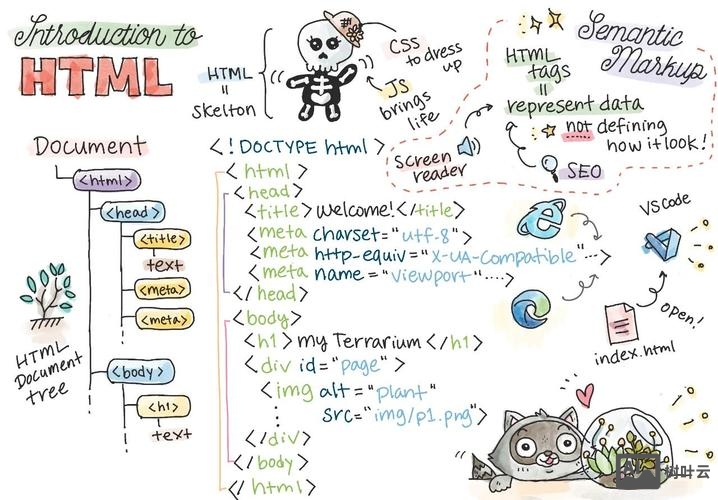 Introduction to
HTML
HTML
=
Skelton
CSS
to dress
up
JS
brings
life
Semantic
Markup
HTML
tags
=
represent data
not defining
how it look!
SEO
Screen
reader
Document
<html>
<head>
<title>
text
<meta>
<meta>
<body>
<h1>
text
HTML
Document
tree
<!DOCTYPE html>
<html>
<head>
<title>Welcome!</title>
<meta charset="utf-8">
<meta http-equiv="X-UA-Compatible"...>
<meta name="viewport"....>
</head>
<body>
<h1>my Terrarium</h1>
<div id="page">
<img alt="plant"
src="img/p1.png">
</div>
</body>
</html>
VScode
open!
index.html
树叶云